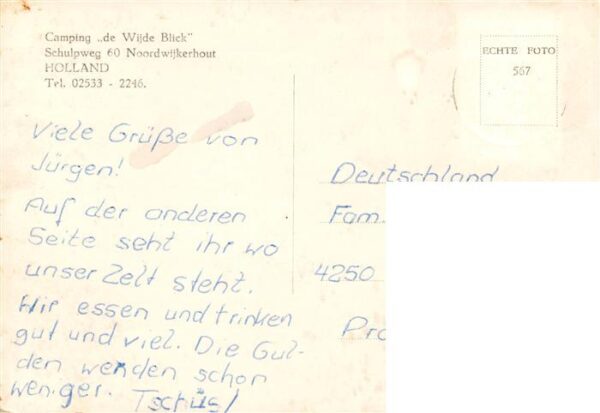 Camping „de Wijde Blick"
Schulpweg 60 Noordwijkerhout
HOLLAND
Tel. 02533 - 2246.
ECHTE FOTO
567
Viele Grüße von
Jürgen!
Auf der anderen
Seite seht ihr wo
unser Zelt steht.
Wir essen und trinken
gut und viel. Die Gul-
den werden schon
weniger. Tschüs!
Deutschland
Fam.
4250